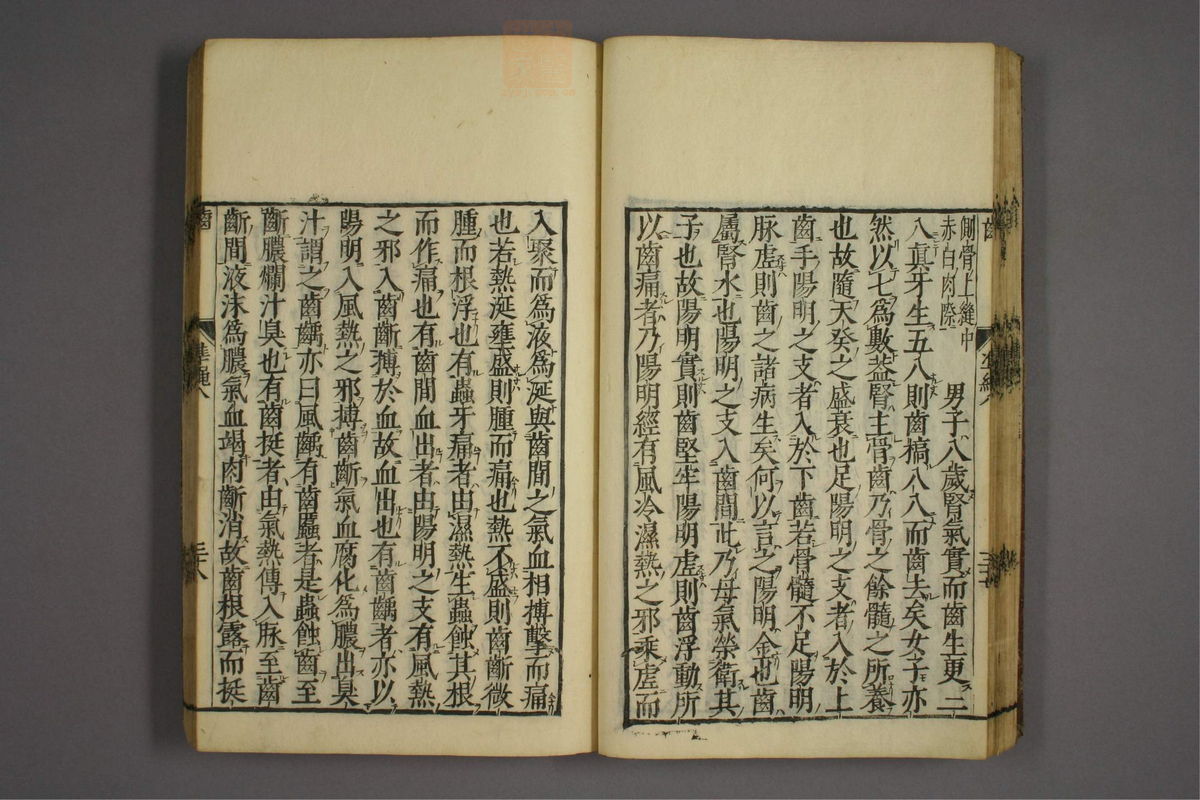 側骨上縫中
赤白肉際
男子八歲腎氣實而齒生更二
八真牙生五八則齒槁八八而齒去矣女子亦
然以七為數蓋腎主骨齒乃骨之餘髓之所養
也故隨天癸之盛衰也足陽明之支者入於上
齒手陽明之支者入於下齒若骨髓不足陽明
脉虛則齒之諸病生矣何以言之陽明金也齒
屬腎水也陽明之支入齒間此乃母氣榮衛其
子也故陽明實則齒堅牢陽明虛則齒浮動所
以齒痛者乃陽明經有風冷濕熱之邪乘虛而
入聚而為液為涎與齒間之氣血相搏擊而痛
也若熱涎壅盛則腫而痛也熱不盛則齒齗微
腫而根浮也有蟲牙痛者由濕熱生蟲蝕其根
而作痛也有齒間血出者由陽明之支有風熱
之邪入齒齗搏於血故血出也有齒齲者亦以
陽明入風熱之邪搏齒齗氣血腐化為膿出臭
汁謂之齒齲亦曰風齲有齒䘌者是蟲蝕齒至
齗膿爛汁臭也有齒挺者由氣熱傳入脉至齒
齗間液沫為膿氣血竭肉齗消故齒根露而挺
齒